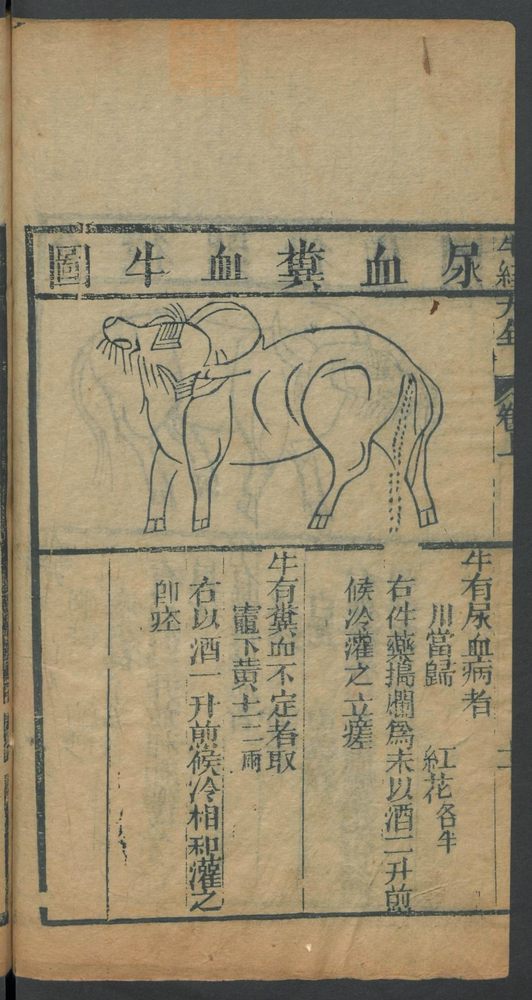 尿血糞血牛圖
牛經大全
卷上
牛有尿血病者
川當歸 紅花各半
右件藥搗爛爲末以酒二升煎
候冷灌之立瘥
牛有糞血不定者取
竈下黃土二兩
右以酒一升煎候冷相和灌之
卽痊